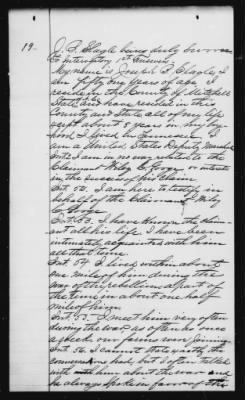 19-
J. F. Slagle being duly sworn
to Interrogatory 1st answers
My name is Joseph F. Slagle, I
am fifty one years of age. I
reside in the County of Mitchell
State and have resided in this
County and State all of my life
except about 8 years in my boy-
hood I lived in Tennessee. I
am a United States Deputy Marshal
Int 2 I am in no way related to the
Claimant or interest
in the success of his Claim
Int. 52. I am here to testify in
behalf of the Claimant
Int. 53. I have known the claim-
ant all his life I have been
intimately acquainted with him
all that time.
Int. 54 I lived within about
one mile of him during the
war of the rebellion a part of
the time in about one half
mile of him
Int. 55. I meet him very often
during the war, as often as once
a week our farms were joining
Int. 56. I cannot state exactly the
conversations had, but I often talked
with him about the war and
he always spoke in favor of the